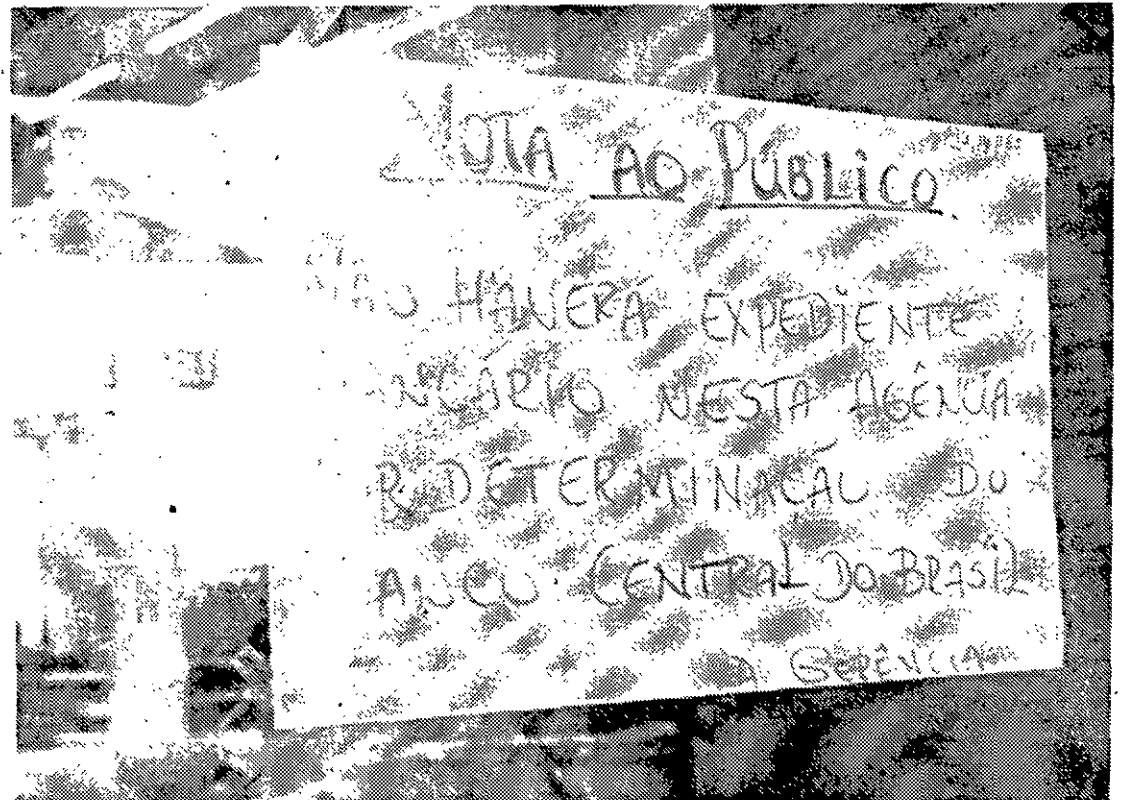 NOTA AO PÚBLICO
NÃO HAVERÁ EXPEDIENTE
ANCÁRIO NESTA AGÊNCIA
R DETERMINAÇÃO DO
ANCO CENTRAL DO BRASIL
A GERÊNCIA